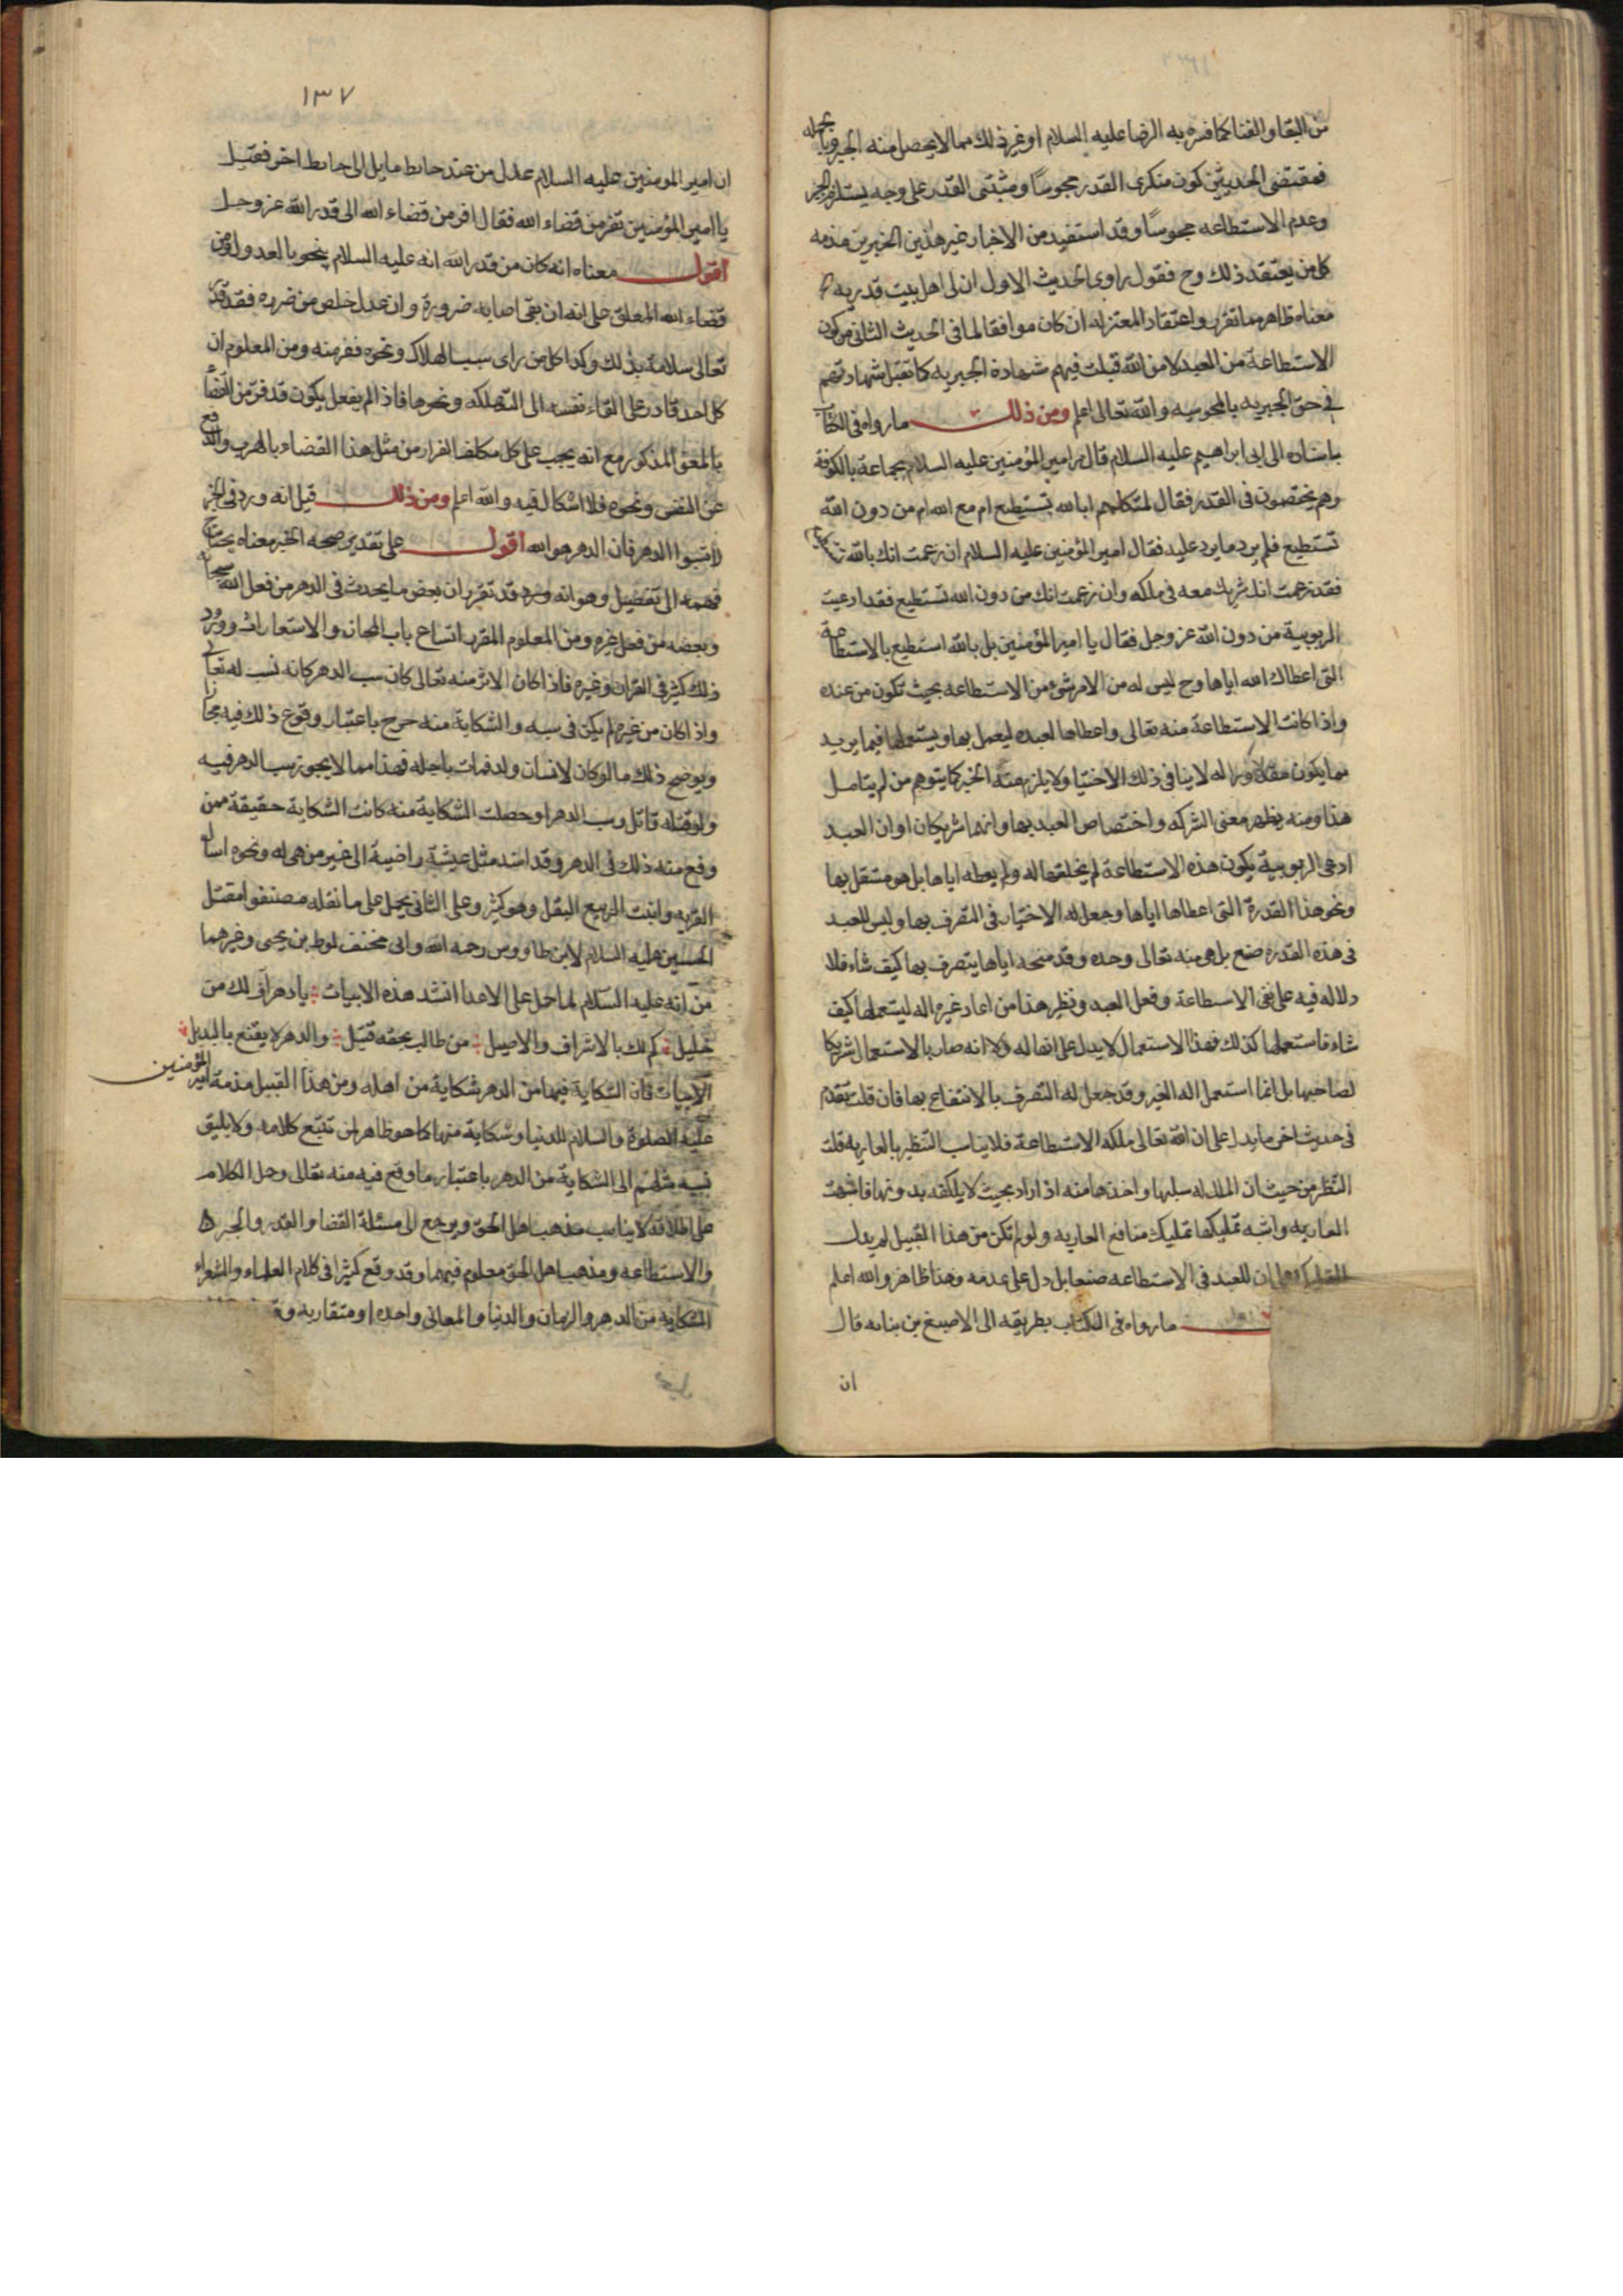 من البقا والفنا كما فسره به الرضا عليه السلام او غير ذلك مما لا يحصل منه الجبر وبالجمله
فمقتضى الحديثين كون منكرى القدر مجوسًا ومثبتى القدر على وجه يستلزم الجبر
وعدم الاستطاعه مجوسًا وقد استفيد من الاخبار غير هذين الخبرين مذمه
كل من يعتقد ذلك وح فقول راوى الحديث الاول ان لى اهل بيت قدريه
معناه ظاهر مما تقرر واعتقاد المعتزله ان كان موافقا لما فى الحديث الثانى من كون
الاستطاعة من العبد لا من الله قبلت فيهم شهادة الجبريه كما تقبل شهادتهم
فى حق الجبريه بالمجوسيه والله تعالى اعلم ومن ذلك ما رواه فى الكتاب
باسناده الى ابى ابراهيم عليه السلام قال مر امير المؤمنين عليه السلام بجماعة بالكوفة
وهم يختصمون فى القدر فقال لمتكلمهم ابالله تستطيع ام مع الله ام من دون الله
تستطيع فلم يرد ما يرد عليه فقال امير المؤمنين عليه السلام ان زعمت انك بالله تستطيع
فقد زعمت انك شريك معه فى ملكه وان زعمت انك من دون الله تستطيع فقد ادعيت
الربوبية من دون الله عز وجل فقال يا امير المؤمنين بل بالله استطيع بالاستطاعة
التى اعطاك الله اياها وح ليس له من الامر شئ من الاستطاعه بحيث تكون من عنده
واذا كانت الاستطاعة منه تعالى واعطاها لعبده ليعمل بها ويستعملها فيما يريد
مما يكون مقدورا له لا ينافى ذلك الاختيا ولا يلزم منه الجبر كما يتوهم من لم يتامل
هذا ومنه يظهر معنى الشركه واختصاص العبد بها وانهما شريكان او ان العبد
ادعى الربوبية بكون هذه الاستطاعة لم يخلقها له ولم يعطه اياها بل هو مستقل بها
ونحو هذا القدرة التى اعطاها اياها وجعل له الاختيار فى التصرف بها وليس للعبد
فى هذه القدره صنع بل هى منه تعالى وحده وقد منحه اياها يتصرف بها كيف شاء فلا
دلاله فيه على نفى الاستطاعة وفعل العبد ونظير هذا من اعار غيره اله ليستعملها كيف
شاء فاستعملها كذلك فهذا الاستعمال لا يدل على انها له ولا انه صار بالاستعمال شريكا
لصاحبها بل انما استعمل اله الغير وقد جعل له التصرف بالانتفاع بها فان قلت تقدم
فى حديث اخر ما يدل على ان الله تعالى ملكه الاستطاعة فلا يناسب التنظير بالعاريه قلت
النظر من حيث ان المالك له سلبها واخذها منه اذا اراد بحيث لا يملكه بدونها فاشبهت
العاريه واشبه تمليكها تمليك منافع العاريه ولو لم تكن من هذا القبيل لم يدل
ان للعبد فى الاستطاعه صنعا بل دل على عدمه وهذا ظاهر والله اعلم
ما رواه فى الكتاب بطريقه الى الاصبغ بن نباته قال
ان
١٣٧
ان امير المومنين عليه السلام عدل من عند حايط مايل الى حايط اخر فقيل
يا امير المؤمنين تفر من قضاء الله فقال افر من قضاء الله الى قدر الله عز وجل
اقول معناه انه كان من قدر الله انه عليه السلام ينحو بالعدول من
قضاء الله المعلق على انه ان بقى اصابه ضرورة وان عدل خلص من ضرره فقد قدر
تعالى سلامة بذلك وكذا كل من راى سبب الهلاك ونحوه ففر منه ومن المعلوم ان
كل احد قادر على القاء نفسه الى التهلكه ونحوها فاذا لم يفعل يكون قد فر من القضا
بالمعنى المذكور مع انه يجب على كل مكلف الفرار من مثل هذا القضاء بالهرب والدفع
عن النفس ونحوه فلا اشكال فيه والله اعلم ومن ذلك قيل انه ورد فى الخبر
لا تسبوا الدهر فان الدهر هو الله اقول على تقدير صحه الخبر معناه يحتاج
فهمه الى تفصيل وهو انه قد تقرر ان بعض ما يحدث فى الدهر من فعل الله سبحانه
وبعضه من فعل غيره ومن المعلوم المقرر اتساع باب المجاز والاستعارات وورود
ذلك كثير فى القران وغيره فاذا كان الاثر منه تعالى كان سب الدهر كانه نسب له تعالى
واذا كان من غيره لم يكن فى سبه والشكاية منه حرج باعتبار وقوع ذلك فيه مجازا
ويوضح ذلك ما لو كان لانسان ولد فمات باجله فهذا مما لا يجوز سب الدهر فيه
ولو قتله قاتل وسب الدهر او حصلت الشكاية منه كانت الشكاية حقيقة ممن
وقع منه ذلك فى الدهر وقد اسند مثل عيشة راضية الى غير من هى له ونحوه اسال
القريه وانبت الربيع البقل وهو كثير وعلى الثانى يحمل على ما نقله مصنفوا مقتل
الحسين عليه السلام لابن طاووس رحمه الله وابى مخنف لوط بن يحيى وغيرهما
من انه عليه السلام لما حمل على الاعدا انشد هذه الابيات يا دهر اف لك من
خليل كم لك بالاشراف والاصيل من طالب بحقه قتيل والدهر لا يقنع بالبديل
الابيات فان الشكاية فيها من الدهر شكاية من اهله ومن هذا القبيل مذمة امير المؤمنين
عليه الصلوة والسلام للدنيا وشكاية منها كما هو ظاهر لمن تتبع كلامه ولا يليق
نسبة مثلهم الى الشكاية من الدهر باعتبار ما وقع فيه منه تعالى وحمل الكلام
على اطلاقه لا يناسب مذهب اهل الحق ويرجع الى مسئلة القضا والقدر والجبر
والاستطاعه ومذهب اهل الحق معلوم فيهما وقد وقع كثيرا فى كلام العلماء والشعراء
الشكاية من الدهر والزمان والدنيا والمعانى واحده او متقاربه